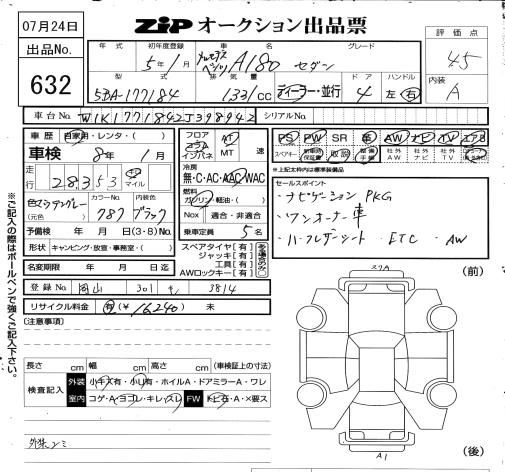 07月24日
出品No.
632
ZIP オークション出品票
評価点
4.5
内装
A
年式 初年度登録 車名 グレード
5年1月 メルセデスベンツ A180 セダン
型式 排気量 ドア ハンドル
5BA-177184 1331cc ディーラー・並行 4 左・右
車台No. W1K1771842J398942 シリアルNo.
車歴 自家用・レンタ・( )
車検 8年1月
走行 28353 キロ マイル
色 マウンテングレー (元色) カラーNo. 787 内装色 ブラック
予備検 年 月 日(3・8)No.
形状 キャンピング・放宣・事務室・( )
名変期限 年 月 日迄
登録No. 岡山 301 3814
リサイクル料金 有(¥16240) 未
フロア コラム インパネ AT MT 速
冷房
無・C・AC・AAC・WAC
燃料
ガソリン・軽油・( )
Nox 適合・非適合
乗車定員 5名
スペアタイヤ[有]
ジャッキ[有]
工具[有]
AWロックキー[有]
ある場合のみ○
PS PW SR 革 AW ナビ TV エアB
スペアキー 新車時保証書 取説 整備手帳 社外AW 社外ナビ 社外TV
※上記太枠は標準装備品
セールスポイント
・ナビゲーション PKG
・ワンオーナー車
・ハーフレザーシート・ETC・AW
[注意事項]
長さ cm 幅 cm 高さ cm (車検証上の寸法)
検査記入 外装 小キズ有・小凹有・ホイルA・ドアミラーA・ワレ
室内 コゲ・A・ヨゴレ・キレ・スレ FW トビ石・A・X要ス
外装
※ご記入の際はボールペンで強くご記入下さい。
(前)
(後)
A1